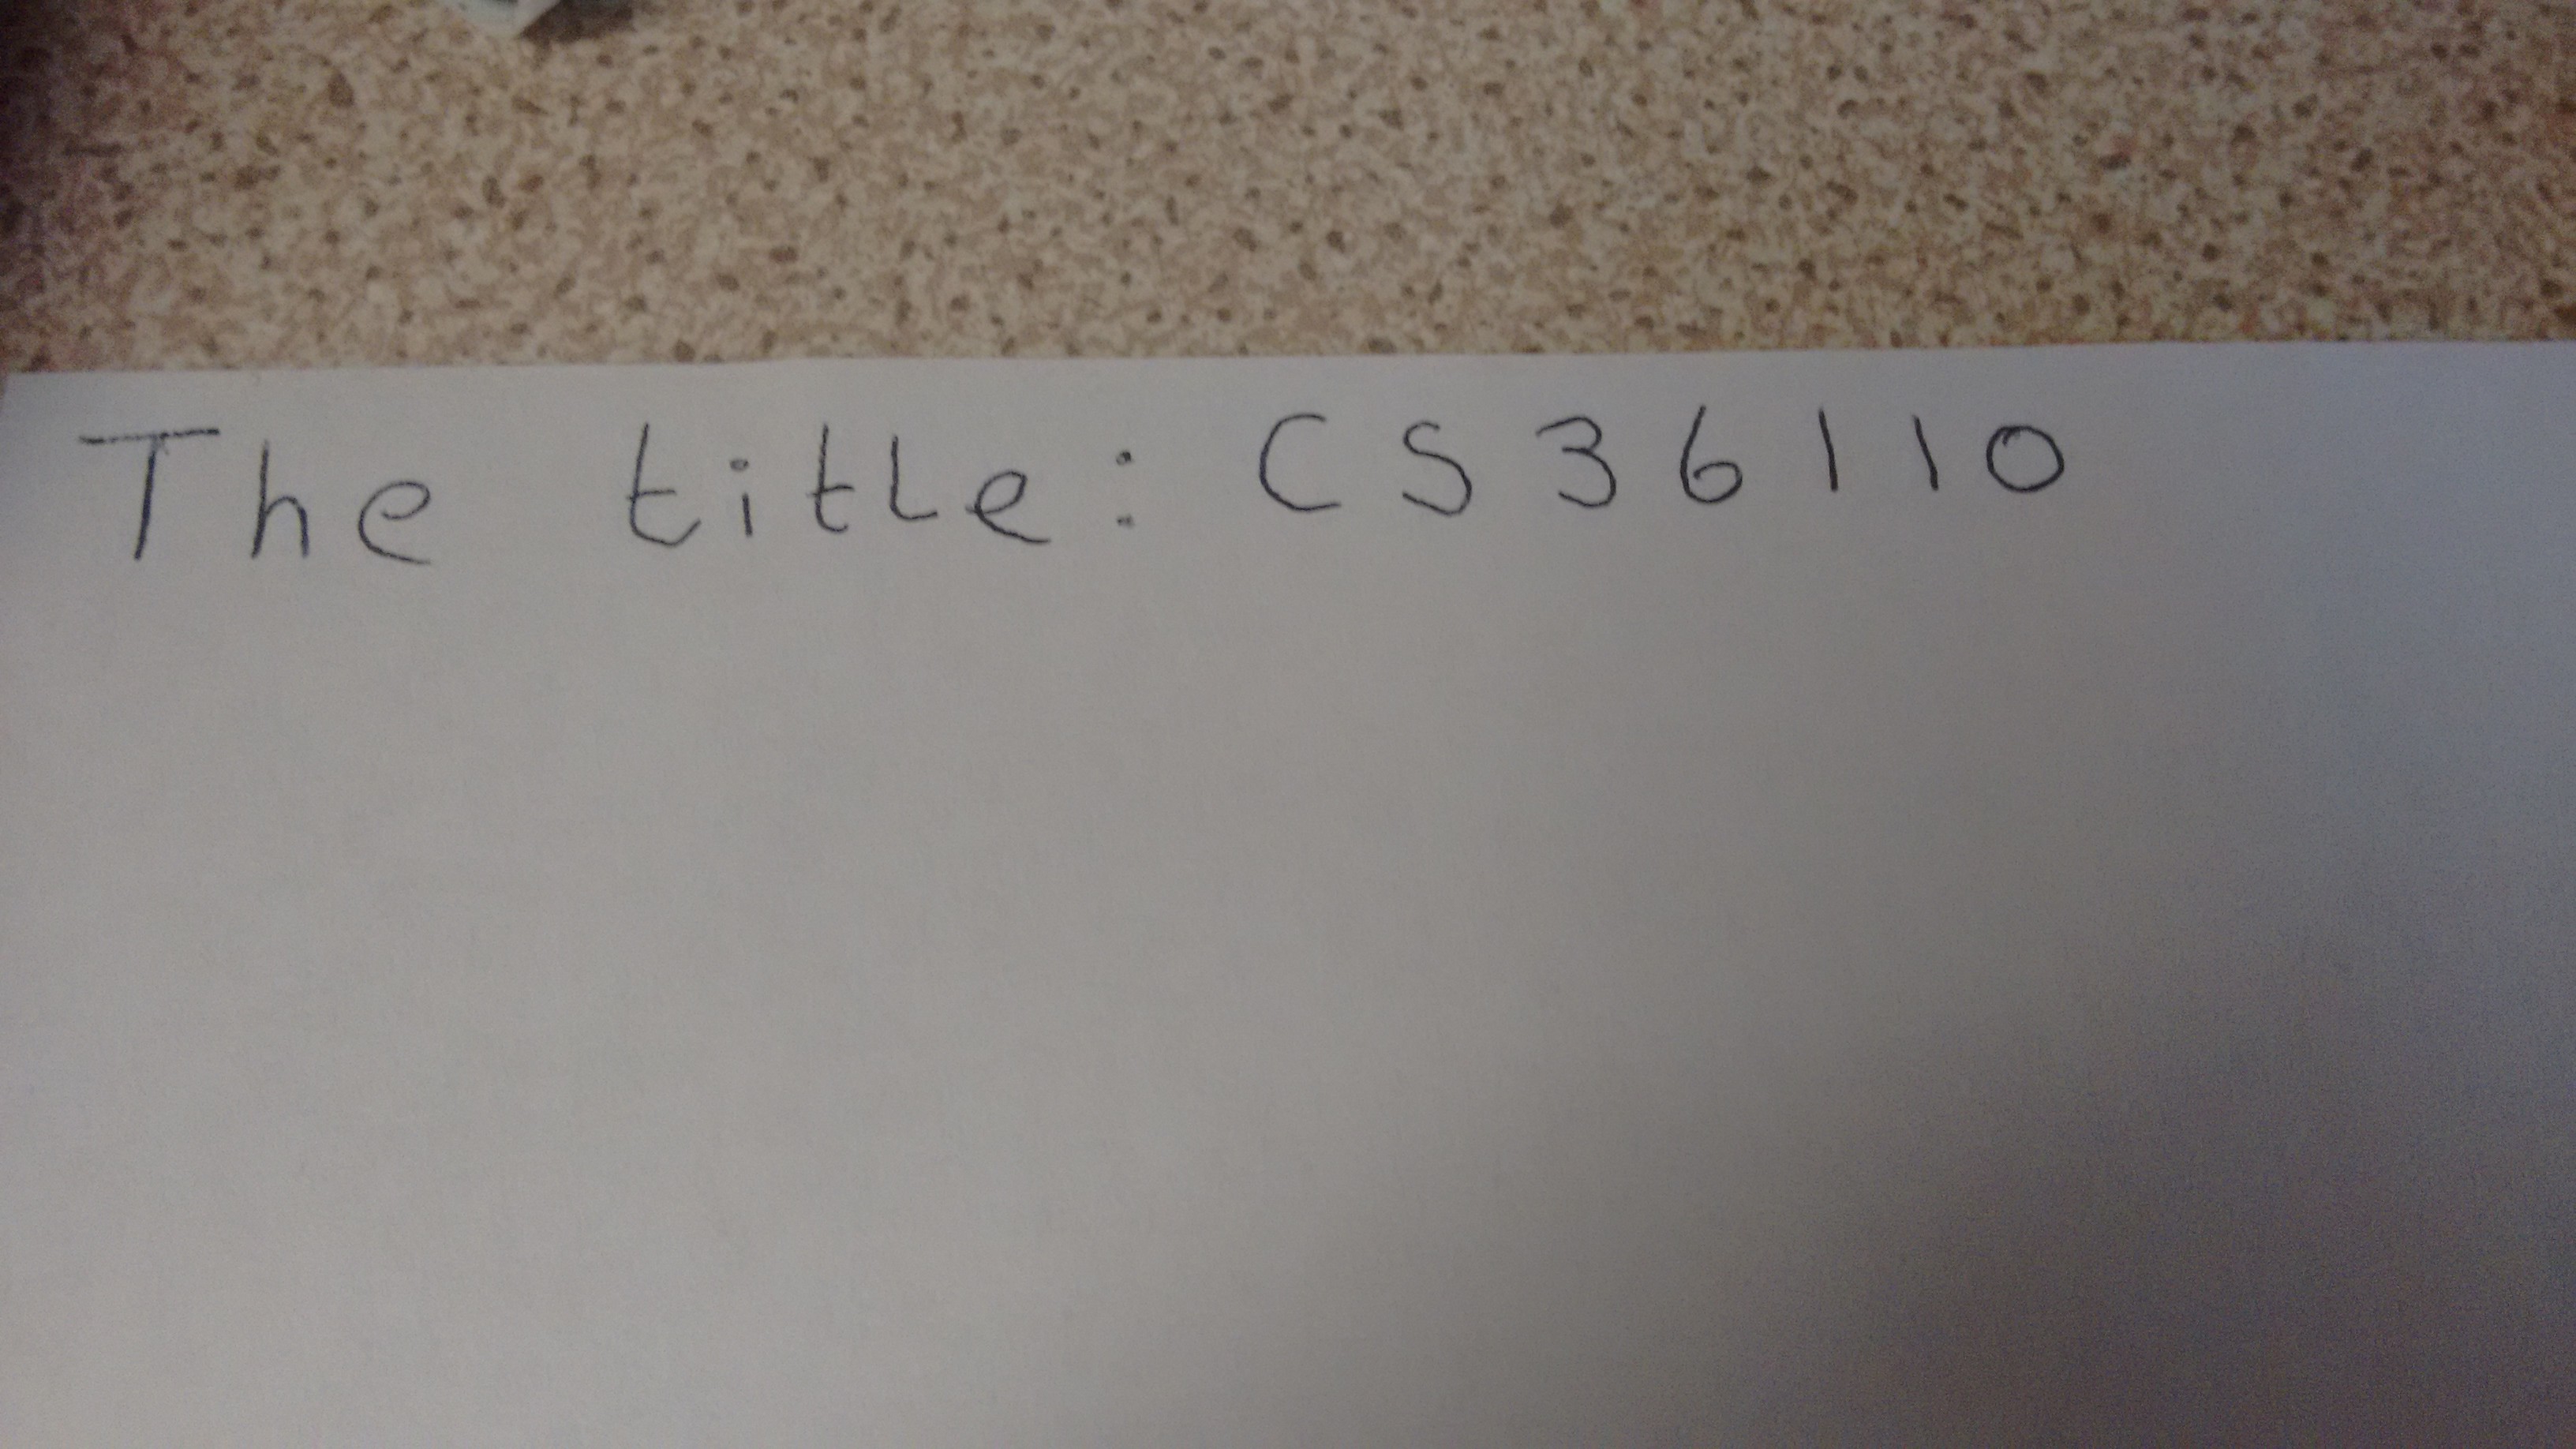 The title: CS36110